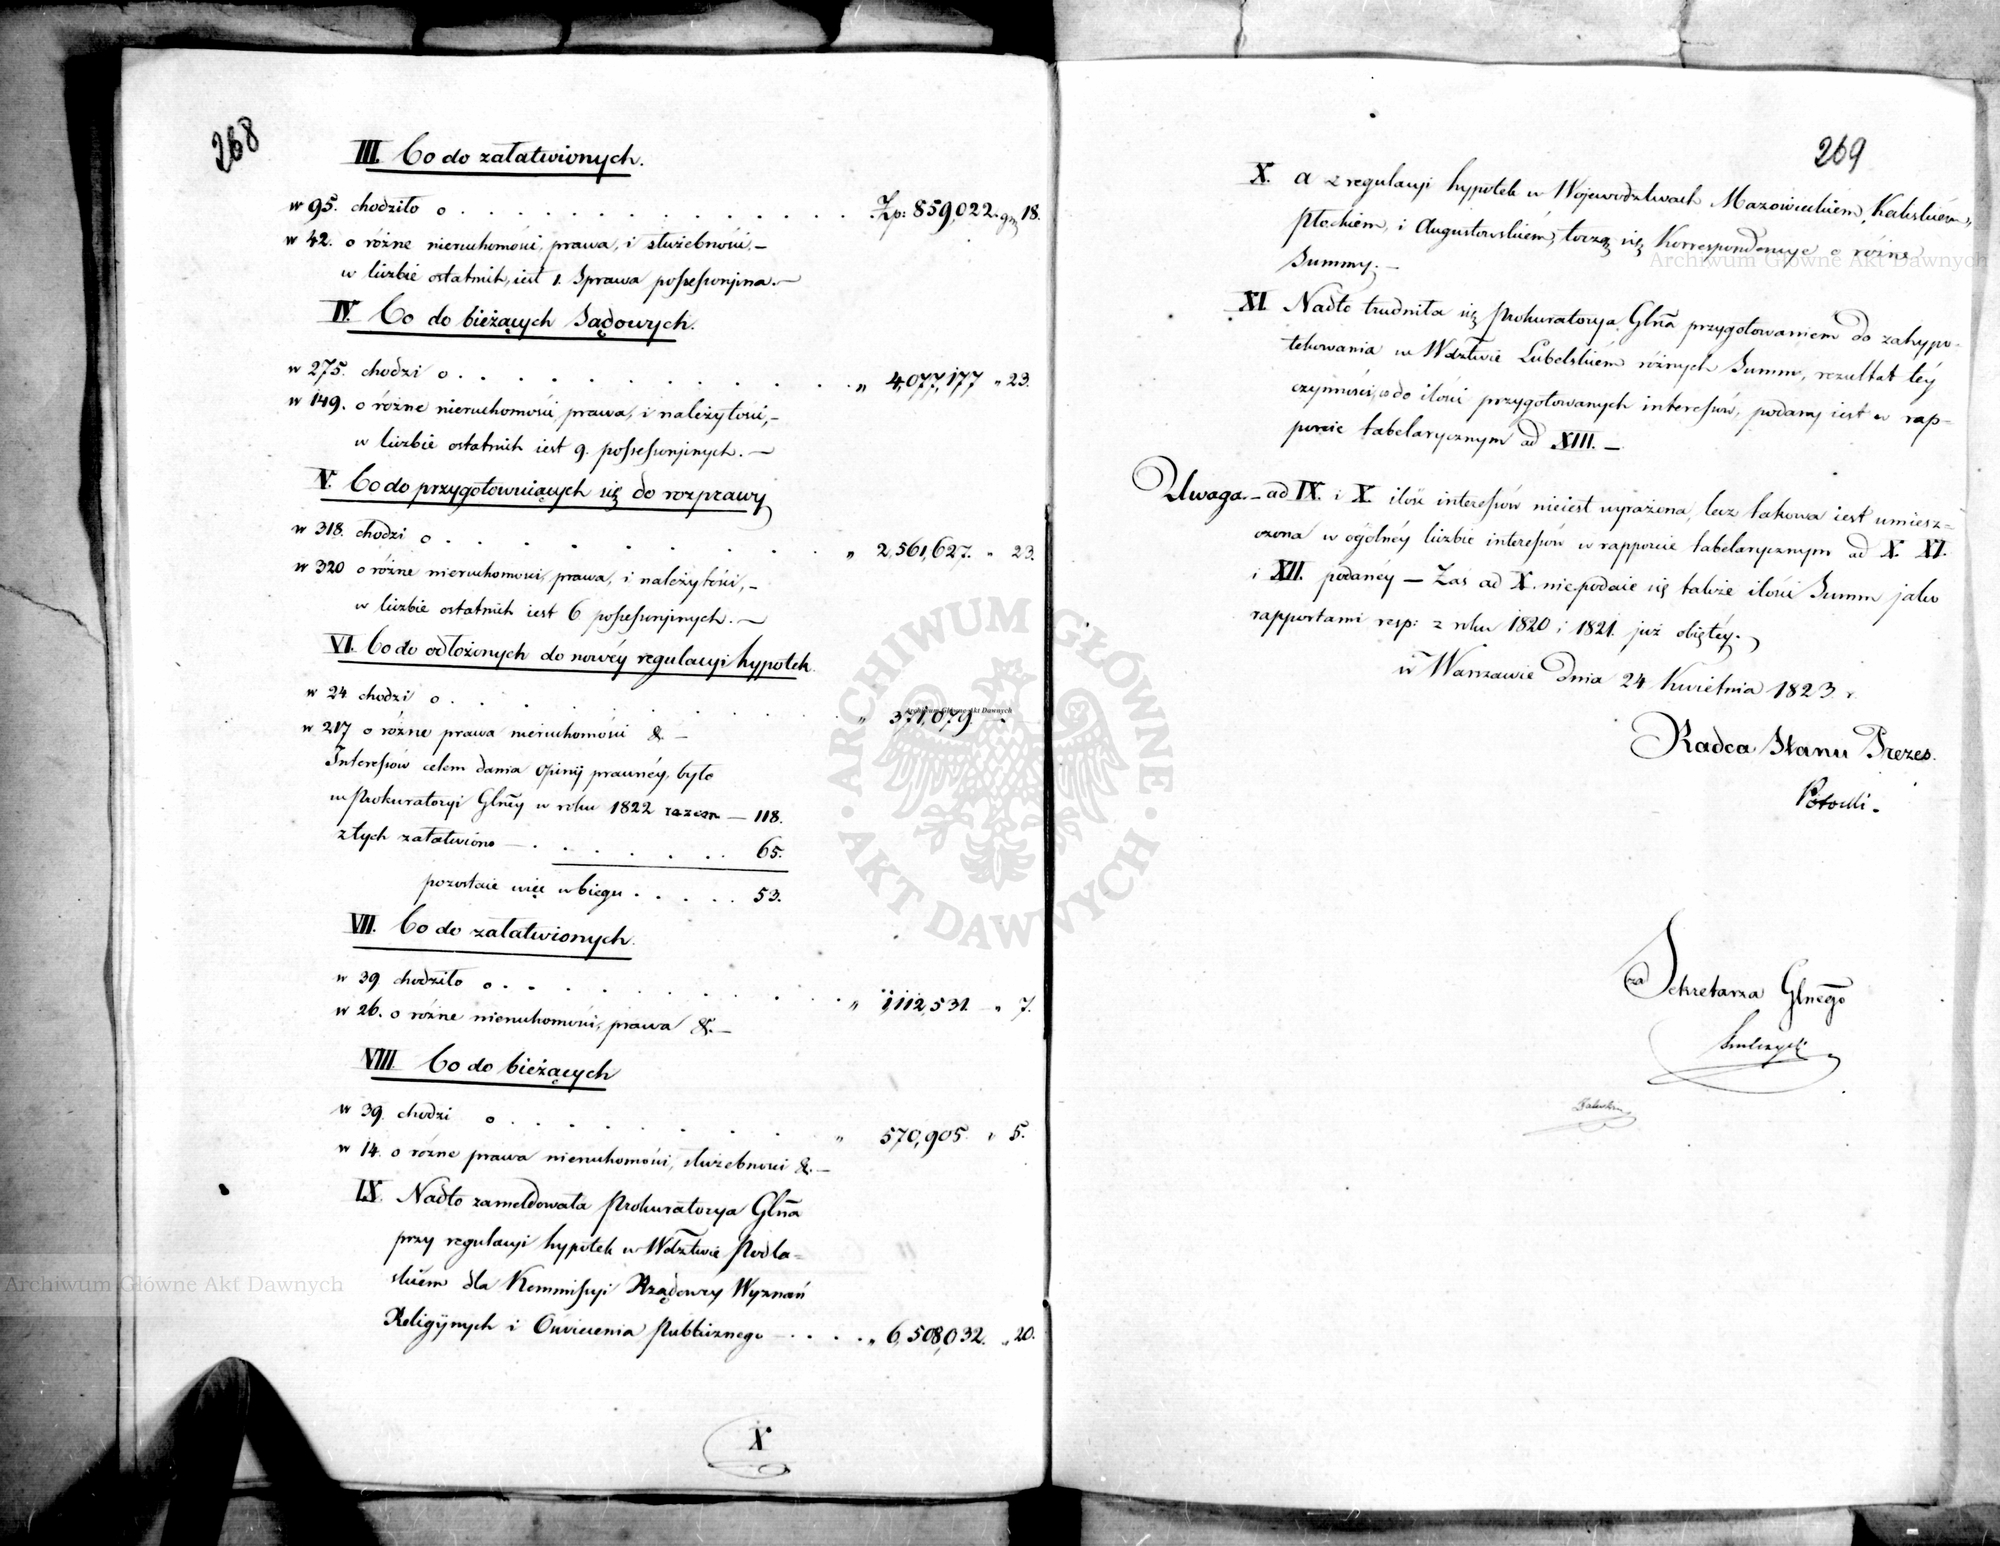 268
III. Co do załatwionych.
w 95. chodziło o . . . . . . . . . . . . . . Zp: 859,022. gr 18.
w 42. o różne nieruchomości, prawa, i służebności, –
w liczbie ostatnich, iest 1. Sprawa possessyjna. –
IV. Co do bieżących Sądowych.
w 275. chodzi o . . . . . . . . . . . „ 4,077,177 „ 23.
w 149. o różne nieruchomości, prawa, i należytości, –
w liczbie ostatnich iest 9. possessyjnych. –
V. Co do przygotowuiących się do rozprawy
w 318. chodzi o . . . . . . . . . . „ 2,561,627. „ 23.
w 320 o różne nieruchomości, prawa, i należytości, –
w liczbie ostatnich iest 6 possessyjnych. –
VI. Co do odłożonych do nowéy regulacyi hypotek.
w 24 chodzi o . . . . . . . . . . „ 371,079. –
w 217 o różne prawa nieruchomości &. –
Interessów celem dania opinij prawnéy, było
w Prokuratoryi Glnéy w roku 1822 razem — 118.
z tych załatwiono — . . . . . . . 65.
pozostaie więc w biegu . . . . . 53.
VII. Co do załatwionych.
w 39. chodziło o . . . . . . . . . . „ 1,112,531. „ 7.
w 26. o różne nieruchomości, prawa &. –
VIII. Co do bieżących
w 39. chodzi o . . . . . . . . „ 570,905. „ 5.
w 14. o różne prawa nieruchomości, służebności &. –
IX. Nadto zameldowała Prokuratorya Glna
przy regulacyi hypotek w Wdztwie Podla-
skiém dla Kommissyi Rządowéy Wyznań
Religijnych i Oświecenia Publicznego — . . . . „ 6,508,032. „ 20.
X
269
X. a z regulacyi hypotek w Województwach Mazowieckiem, Kaliskiém,
Płockiem, i Augustowskiém, toczą się Korrespondencye o różne
Summy. –
XI. Nadto trudniła się Prokuratorya Glna przygotowaniem do zahypo-
tekowania w Wdztwie Lubelskiém różnych Summ, rezultat téy
czynności, co do ilości przygotowanych interessów, podany iest w rap-
porcie tabelarycznym ad XIII. –
Uwaga. – ad IX. i X. ilość interessów nieiest wyrażona, lecz takowa iest umiesz-
czona w ogólnéy liczbie interessów w rapporcie tabelarycznym ad X. XI.
i XII. podanéy — Zaś ad X. nie podaie się także ilości Summ jako
rapportami resp: z roku 1820 i 1821. już obiętéy.
w Warszawie dnia 24 Kwietnia 1823 r.
Radca Stanu Prezes.
Potocki.
za Sekretarza Glnego
Archiwum Główne Akt Dawnych
Archiwum Główne Akt Dawnych
Archiwum Główne Akt Dawnych
ARCHIWUM GŁÓWNE · AKT DAWNYCH ·